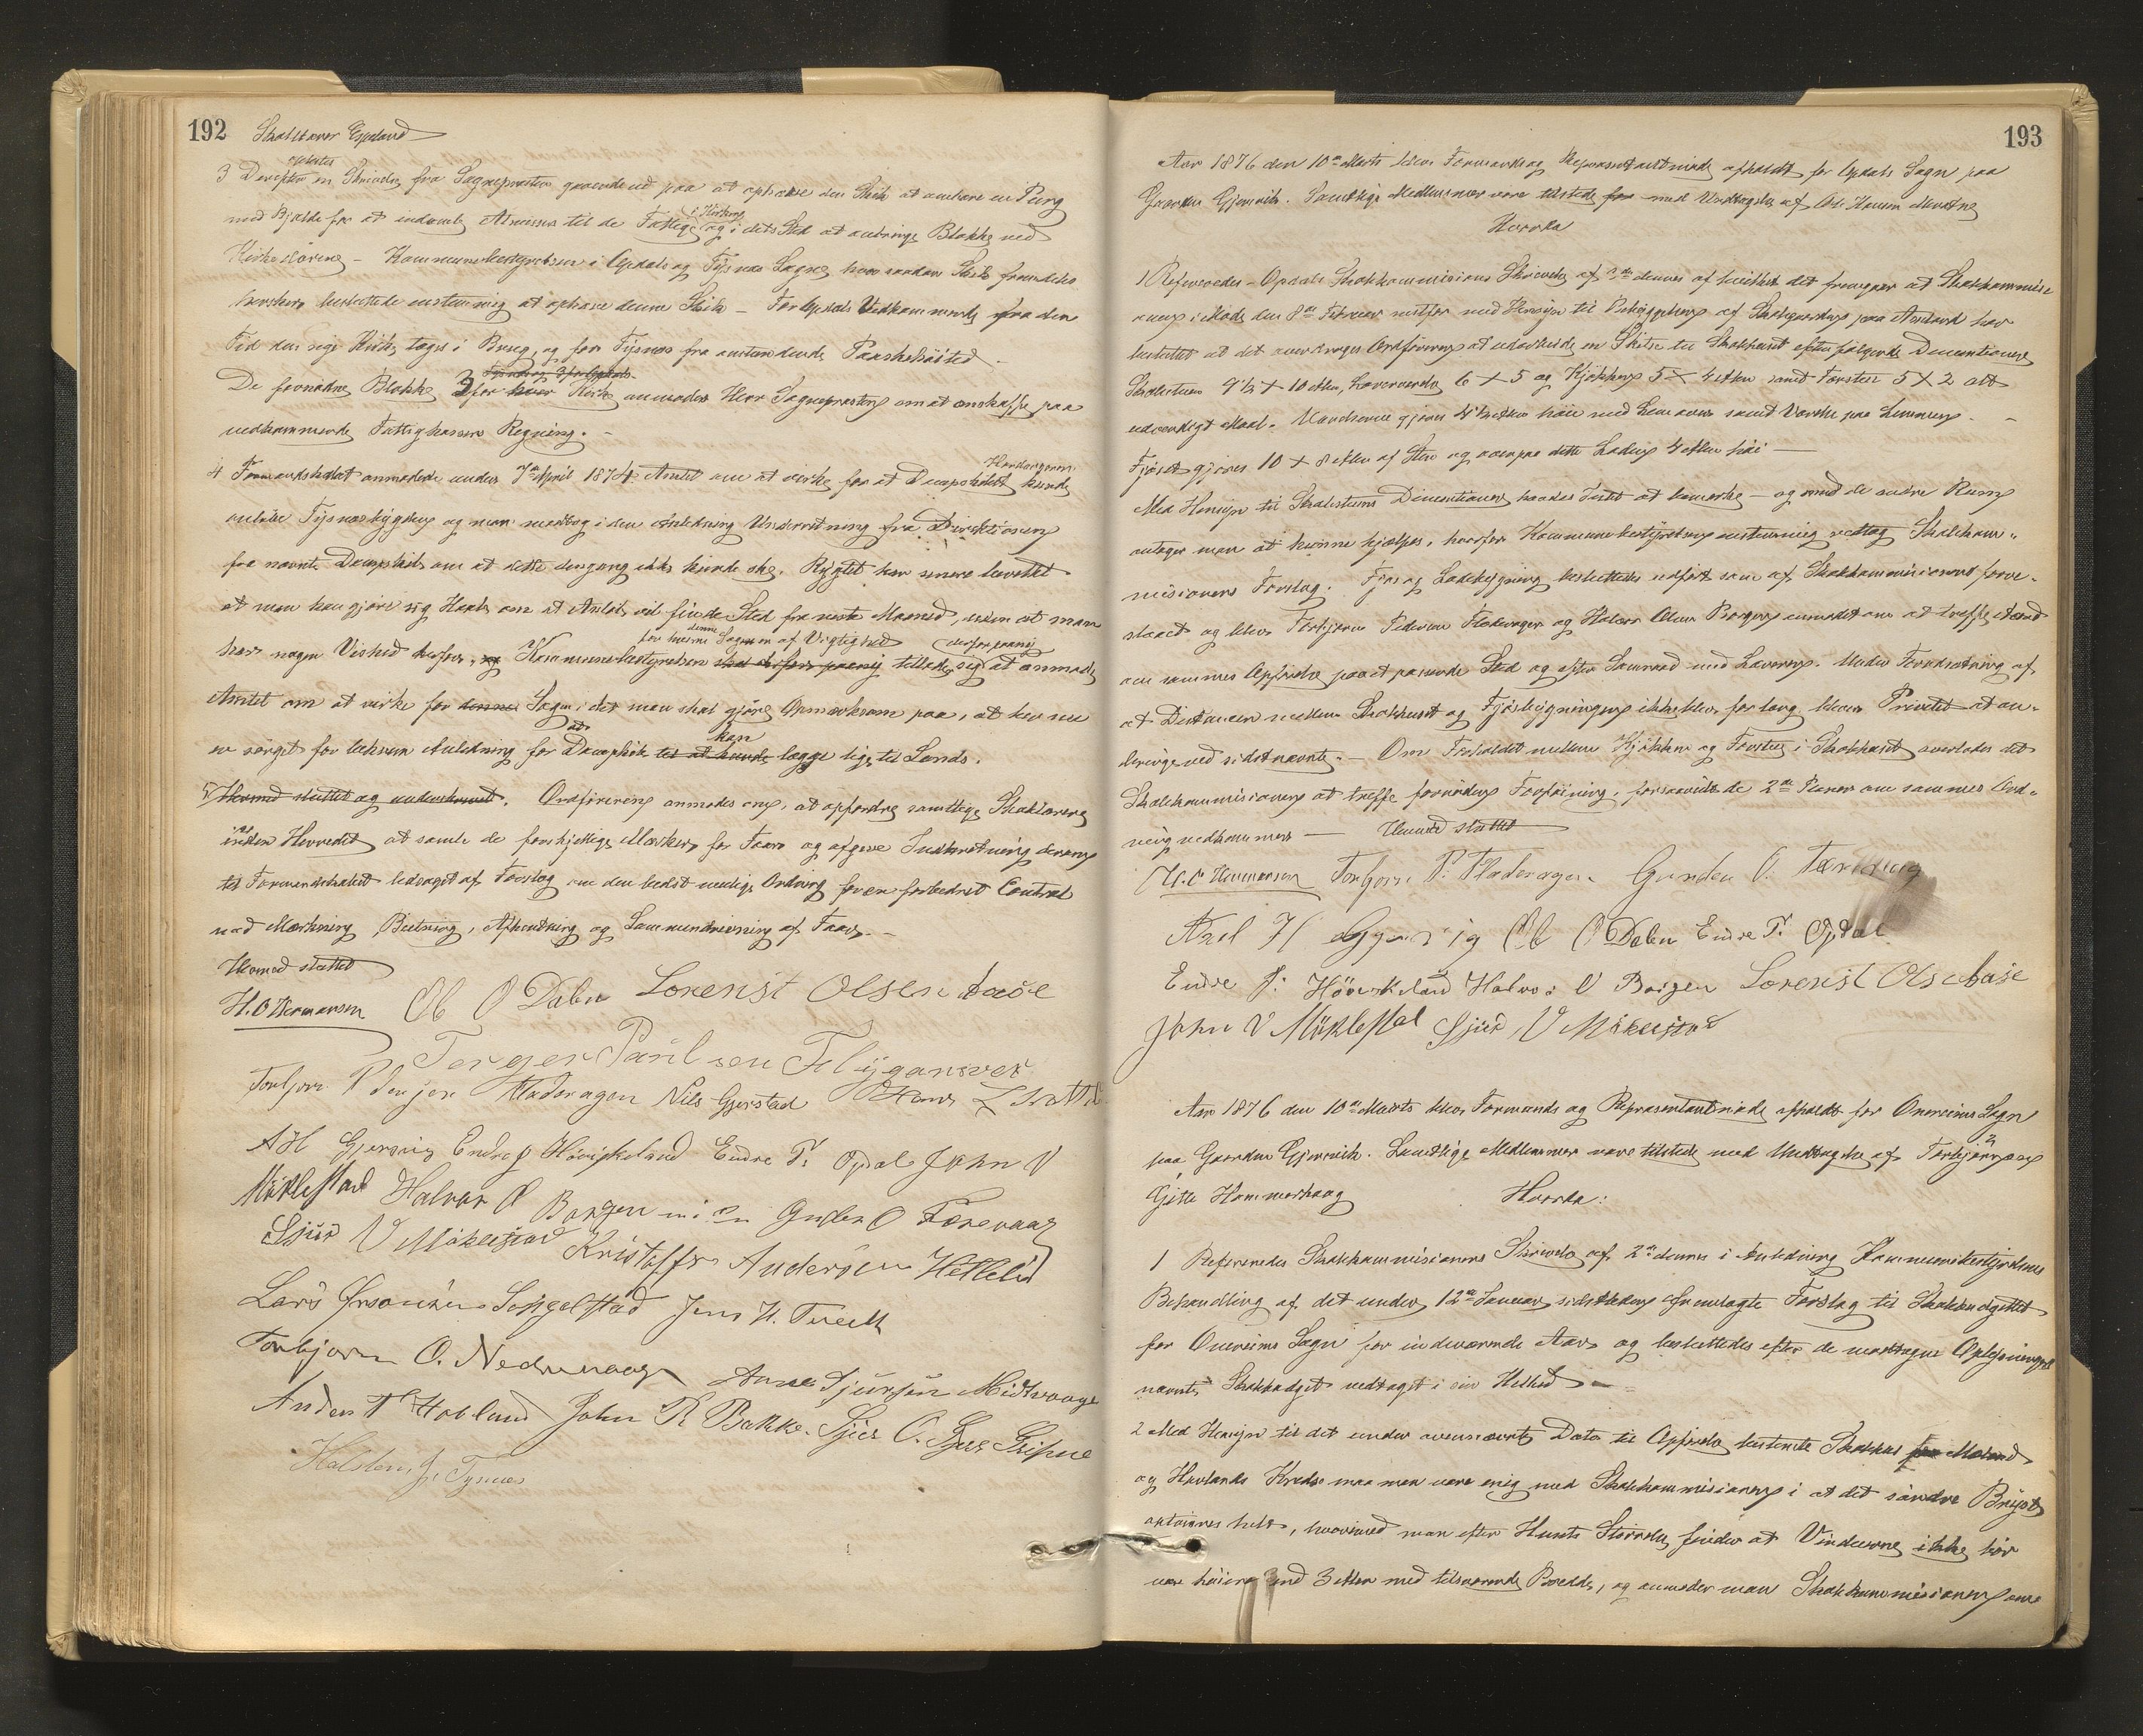 192
Skolelærer Espeland
3 Derefter oplæstes en Skrivelse fra Sognepresten gaaende ud paa at ophæve den Skik at ombære en Pung
med Bjælde for at indsamle Almisser til de Fattige i Kirkerne og i dets Sted at anbringe Blokke ved
Kirkedørene – Kommunebestyrelsen i Opdals og Tysnæs Sogne, hvor saadan Skik fremdeles
hersker besluttede enstemmig at ophæve denne Skik – For Opdals Vedkommende fra den
Tid den nye Kirke tages i Brug, og for Tysnæs fra anstundende Paaskehøitid.
De fornødne Blokke 3 for hver Kirke anmodes Herr Sognepresten om at anskaffe paa
vedkommende Fattigkasses Regning. –
4 Formandskabet anmodede under 7de April 1874 Amtet om at virke for at Dampskibet Hardangeren kunde
anløbe Tysnæsbygden og man modtog i den Anledning Underretning fra Direktionen
for nævnte Dampskib om at dette dengang ikke kunde ske. Rygtet har senere bevirket
at man kan gjøre sig Haab om at Anløb vil finde Sted fra næste Maaned, uden at man
har nogen Vished derfor, og Kommunebestyrelsen tillader sig derfor paany at anmode
Amtet om at virke for denne for denne Sogn er af Vigtighed Sag, i det man skal gjøre Opmærksom paa, at her nu
er sørget for bekvem Anledning for at Dampskib kan lægge lige til Lands.
5 Hermed sluttet og underskrevet. Ordføreren anmodes om, at opfordre samtlige Skolelærere
inden Herredet at samle de forskjellige Mærker for Faar og afgive Indberetning derom
til Formandskabet ledsaget af Forslag om den bedst mulige Ordning for en forbedret Control
ved Mærkning, Beitning, Afhentning og Sammendrivning af Faar. –
Hermed sluttet
H. O Hermansen Ole O Dalen Lorenst Olsen Base
Terger Paulsen Flygansvær
Torbjørn P. Fladeragen Nils Gjerstad Hans
A H Gjersvig Endre J Høviskeland Endre T. Opdal John V
Møklestad Halvor O Borgen Gunder O Færevaag
Sjur V Møklestad Kristoffer Andersen Hellelid
Lars Songelstad Jens H. Tveit
Torbjørn O. Nedrevaage Arne Sjursen Midtvaage
Anders T Hovland John R Bakke. Sjur O. Gripne
Halsten J. Tysnes
193
Aar 1876 den 10de Marts blev Formands og Repræsentantmøde afholdt for Opdals Sogn paa
Gaarden Gjervik. Samtlige Medlemmer vare tilstede med Undtagelse af Ole Hansen
Hvorda
1 Refereredes – Opdals Skolekommissions Skrivelse af 2den dennes af hvilken det fremgaar at Skolekommissi
onen i Møde den 8de Februar sidstfor med Hensyn til Bebyggelsen af Skolegaarden paa Aarland har
besluttet at det overdrages Ordføreren at udarbeide en Skitse til Skolehuset efter følgende Dimentioner
Skolestuen 9½ X 10 Alen, Læreværelse 6 X 5 og Kjøkken 5 X 4 Alen samt Forstue 5 X 2 alt
udvendigt Maal. Vandhøiden gjøres 4½ Alen høi med Lemmer samt Værelse paa Lemmen. –
Fjøset gjøres 10 X 8 Alen af Sten og ovenpaa dette Laden 4 Alen høi –
Med Hensyn til Skolestuens Dimentioner havdes Intet at bemærke – og med de andre Rum
antager man at kunne hjælpes, hvorfor Kommunebestyrelsen enstemmig vedtog Skolekom-
misionens Forslag. Fjøs og Ladebygning besluttedes udført som af Skolekommissionen fore-
slaaet og blev Torbjørn Pedersen Fladeragen og Halvor Olsen Borgen anmodet om at træffe Aftale
om sammes Opførelse paa et passende Sted og efter Samraad med Læreren. Under Forudsætning af
at Distancen mellem Skolehuset og Fjøsbygningen ikke blev for lang, blev Privetet at an-
bringe ved sidstnævnte. – Om Forholdet mellem Kjøkken og Forstue i Skolehuset overlodes det
Skolekommissionen at træffe fornøden Forføining, forsaavidt de 2de Planer om sammes Ord-
ning vedkommer – Hermed sluttet
H. O Hermansen Torbjørn P. Fladeragen Gunder O. Færevaag
Axel H Gjersvig Ole O Dalen Endre T. Opdal
Endre J. Høviskeland Halvor O Borgen Lorenst Olsen Base
John V Møklestad Sjur V Møklestad
Aar 1876 den 10de Marts blev Formands og Repræsentantmøde afholdt for Onereims Sogn
paa Gaarden Gjervik. Samtlige Medlemmer vare tilstede med Undtagelse af Torbjørn og
Gjete Hammerhaug Hvorda:
1 Refereredes Skolekommissionens Skrivelse af 2den dennes i Anledning Kommunebestyrelsens
Behandling af det under 12te Januar sidstleden fremlagte Forslag til Skolebudgettet
for Onereims Sogn for indeværende Aar og besluttedes efter de modtagne Oplysninger
nævnte Skolebudget vedtaget i sin Helhed –
2 Med Hensyn til det under ovennævnte Dato til Opførelse bestemte Skolehus for Meland
og Hovlands Kreds maa man være enig med Skolekommissionen i at det søndre Bryst
optømres helt, hvorimod man efter Husets Størrelse finder at Vinduerne ikke bør
være høiere end 3 Alen med tilsvarende Bredde, og anmoder man Skolekommissionen om